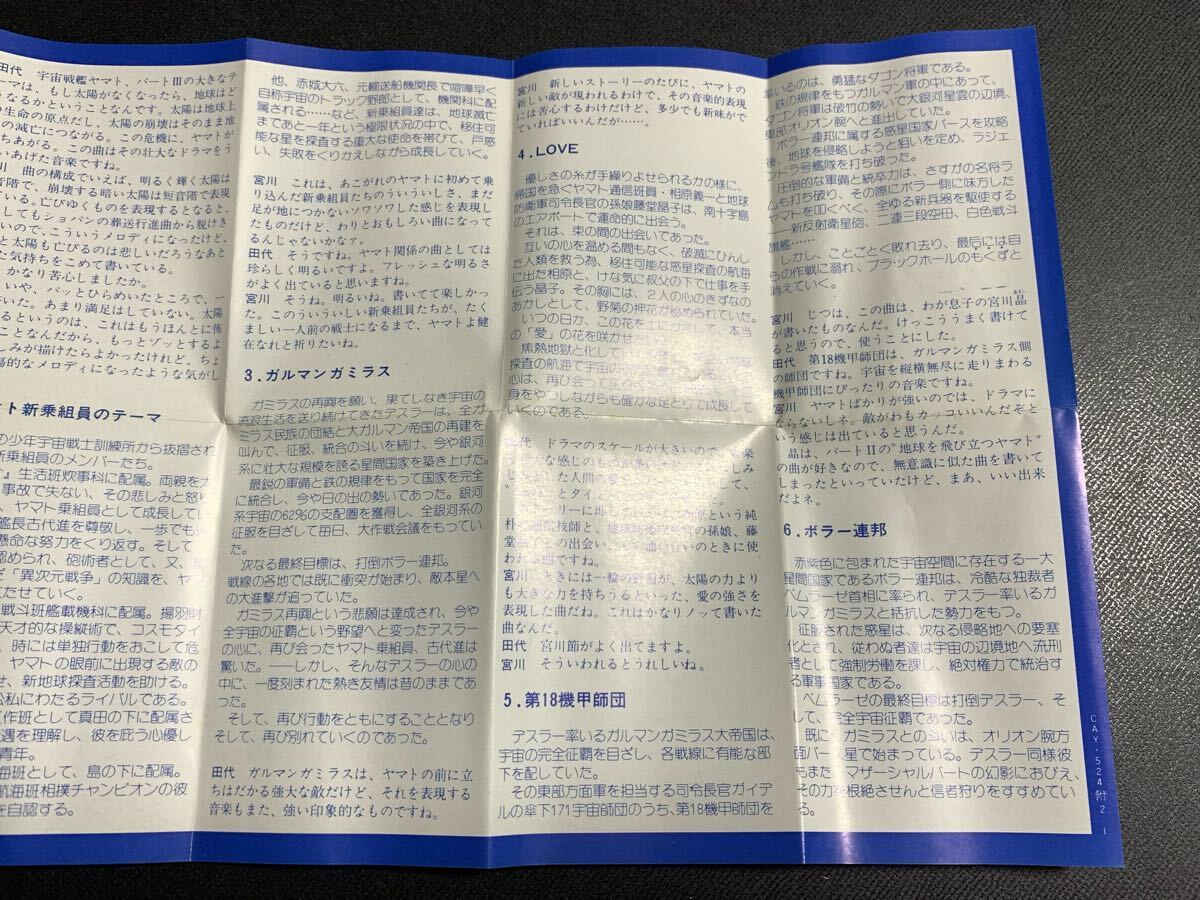 田代 宇宙戦艦ヤマト、パートⅢの大きなテ
ーマは、もし太陽がなくなったら、地球はど
うなるかということなんです。太陽は地球上
生命の原点だし、太陽の崩壊はそのまま地
の滅亡につながる。この危機に、ヤマトが
ちあがる。この曲はその壮大なドラマをう
いあげた音楽ですね。
川 曲の構成でいえば、明るく輝く太陽は
音階で、崩壊する暗い太陽は短音階で表現
ている。亡びゆくものを表現するとなると、
してもショパンの葬送行進曲から脱けき
いので、こういうメロディになったけど、
と太陽も亡びるのは悲しいだろうなあと
た気持ちをこめて書いている。
かなり苦心しましたか。
いや、パッとひらめいたところで、一
いた。あまり満足はしていない。太陽
るというのは、これはもうほんとに怖
ことなんだから、もっとゾッとするよ
しみが描けたらよかったけれど、ちょ
島的なメロディになったような気がし
ト新乗組員のテーマ
の少年宇宙戦士訓練所から抜擢され
新乗組員のメンバーたち。
』生活班炊事科に配属。両親を
事故で失ない、その悲しみと怒り
、ヤマト乗組員として成長してい
艦長古代進を尊敬し、一歩でも
懸命な努力をくり返す。そして
認められ、砲術者として、又、
「異次元戦争」の知識を、ヤマ
てたせていく。
戦斗班艦載機科に配属。揚羽財
天才的な操縦術で、コスモタイ
、時には単独行動をおこして危
、ヤマトの眼前に出現する敵の
せ、新地球探査活動を助ける。
公私にわたるライバルである。
工作班として真田の下に配属さ
遇を理解し、彼を庇う心優し
青年。
海班として、島の下に配属。
航海班相撲チャンピオンの彼
を自認する。
他、赤城大六、元輸送船機関長で喧嘩早く
自称宇宙のトラック野郎として、機関科に配
属される……など、新乗組員達は、地球滅亡
まであと一年という極限状況の中で、移住可
能な星を探査する重大な使命を帯びて、戸惑
い、失敗をくりかえしながら成長していく。
宮川 これは、あこがれのヤマトに初めて乗
り込んだ新乗組員たちのういういしさ、まだ
足が地につかないソワソワした感じを表現し
たのだけど、わりとおもしろい曲になって
るんじゃないかな？。
田代 そうですね。ヤマト関係の曲としては
珍らしく明るいですよ。フレッシュな明るさ
がよく出ていると思いますね。
宮川 そうね。明るいね。書いてて楽しかっ
た。このういういしい新乗組員たちが、たく
ましい一人前の戦士になるまで、ヤマトよ健
在なれと祈りたいね。
3.ガルマンガミラス
ガミラスの再興を願い、果てしなき宇宙の
流浪生活を送り続けてきたデスラーは、全ガ
ミラス民族の団結と大ガルマン帝国の再建を
叫んで、征服、統合の斗いを続け、今や銀河
系に壮大な規模を誇る星間国家を築き上げた。
最鋭の軍備と鉄の規律をもって国家を完全
に統合し、今や日の出の勢いであった。銀河
系宇宙の62%の支配圏を獲得し、全銀河系の
征服をめざして毎日、大作戦会議をもってい
た。
次なる最終目標は、打倒ボラー連邦。
戦線の各地では既に衝突が始まり、敵本星へ
の大進撃が迫っていた。
ガミラス再興という悲願は達成され、今や
全宇宙の征覇という野望へと変ったデスラー
の心に、再び会ったヤマト乗組員、古代進は
驚いた。──しかし、そんなデスラーの心の
中に、一度刻まれた熱き友情は昔のままであ
った。
そして、再び行動をともにすることとなり
そして、再び別れていくのであった。
田代 ガルマンガミラスは、ヤマトの前に立
ちはだかる強大な敵だけど、それを表現する
音楽もまた、強い印象的なものですね。
宮川 新しいストーリーのたびに、ヤマトの
新しい敵が現われるわけで、その音楽的表現
には苦心するわけだけど、多少でも新味がで
ていればいいんだが……。
4.LOVE
優しさの糸が手繰りよせられるカの様に、
帰国を急ぐヤマト通信班員・相原義一と地球
防衛軍司令長官の孫娘藤堂晶子は、南十字島
のエアポートで運命的に出会う。
それは、束の間の出会いであった。
互いの心を温める間もなく、破滅にひんし
た人類を救う為、移住可能な惑星探査の航海
に出た相原と、けな気に叔父の下で仕事を手
伝う晶子。その胸には、2人の心のきずなの
あかしとして、野菊の押花が秘められていた。
いつの日か、この花を土にかえして、本当
の「愛」の花を咲かせたい
焦熱地獄と化してい
探査の航海で宇宙の
心は、再び会って
身をやつしながらも確かな足どりで成長して
いくのである。
田代 ドラマのスケールが大きいので、音楽
大な感じのものが多い
した人間の愛
とタイ
ーリーに即し という純
朴な通信技師と、地球防衛軍長官の孫娘、藤
堂晶子との出会い のときに使
われる曲ですね。
宮川 ときには一輪の野菊が、太陽の力より
も大きな力を持ちうるといった、愛の強さを
表現した曲だね。これはかなりノッて書いた
曲なんだ。
田代 宮川節がよく出てますよ。
宮川 そういわれるとうれしいね。
5.第18機甲師団
デスラー率いるガルマンガミラス大帝国は、
宇宙の完全征覇を目ざし、各戦線に有能な部
下を配していた。
その東部方面軍を担当する司令長官ガイデ
ルの傘下171宇宙師団のうち、第18機甲師団を
率いるのは、勇猛なダゴン将軍である。
鉄の規律をもつガルマン軍の中にあって、
ダゴン将軍は破竹の勢いで大銀河星雲の辺境、
東部オリオン腕へと進出していた。
ボラー連邦に属する惑星国家バースを攻略
後、地球を侵略しようと狙いを定め、ラジェ
ンドラ号艦隊を打ち破った。
圧倒的な軍備と統卒力は、さすがの名将ラ
ムも打ち破り、その際にボラー側に味方した
ヤマトを叩くべく、全ゆる新兵器を駆使する
──新反射衛星砲、二連三段空母、白色戦斗
旗艦……
しかし、ことごとく敗れ去り、最后には自
らの作戦に溺れ、ブラックホールのもくずと
消えていく。
宮川 じつは、この曲は、わが息子の宮川晶
が書いたものなんだ。けっこううまく書けて
ると思うので、使うことにした。
田代 第18機甲師団は、ガルマンガミラス側
の師団ですね。宇宙を縦横無尽に走りまわる
機甲師団にぴったりの音楽ですね。
宮川 ヤマトばかりが強いのでは、ドラマに
ならないしネ。敵がわもカッコいいんだぞと
いう感じは出ていると思うんだ。
晶は、パートⅡの“地球を飛び立つヤマト”
の曲が好きなので、無意識に似た曲を書いて
しまったといっていたけど、まあ、いい出来
だよネ。
6.ボラー連邦
赤紫色に包まれた宇宙空間に存在する一大
星間国家であるボラー連邦は、冷酷な独裁者
ベムラーゼ首相に率られ、デスラー率いるガ
ルマンガミラスと拮抗した勢力をもつ。
征服された惑星は、次なる侵略地への要塞
化とされ、従わぬ者達は宇宙の辺境地へ流刑
者として強制労働を課し、絶対権力で統治す
る軍事国家である。
ベムラーゼの最終目標は打倒デスラー、そ
して、完全宇宙征覇であった。
既にガミラスとの斗いは、オリオン腕方
面バース星で始まっている。デスラー同様彼
もまた、マザーシャルバートの幻影におびえ、
その力を根絶させんと信者狩りをすすめてい
る。
CAY・524 附2-1